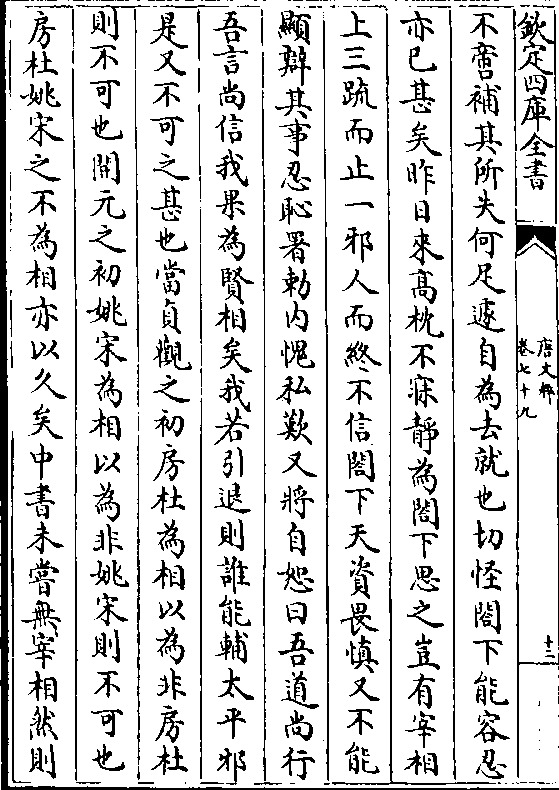 欽定四庫全書
唐文粹
卷七十九
十三
不啻補其所失何足遽自為去就也切怪閤下能容忍
亦已甚矣昨日來高枕不寐靜為閤下思之豈有宰相
上三疏而止一邪人而終不信閤下天資畏慎又不能
顯辯其事忍恥署勅內愧私歎又將自恕曰吾道尚行
吾言尚信我果為賢相矣我若引退則誰能輔太平邪
是又不可之甚也當貞觀之初房杜為相以為非房杜
則不可也開元之初姚宋為相以為非姚宋則不可也
房杜姚宋之不為相亦以久矣中書未嘗無宰相然則